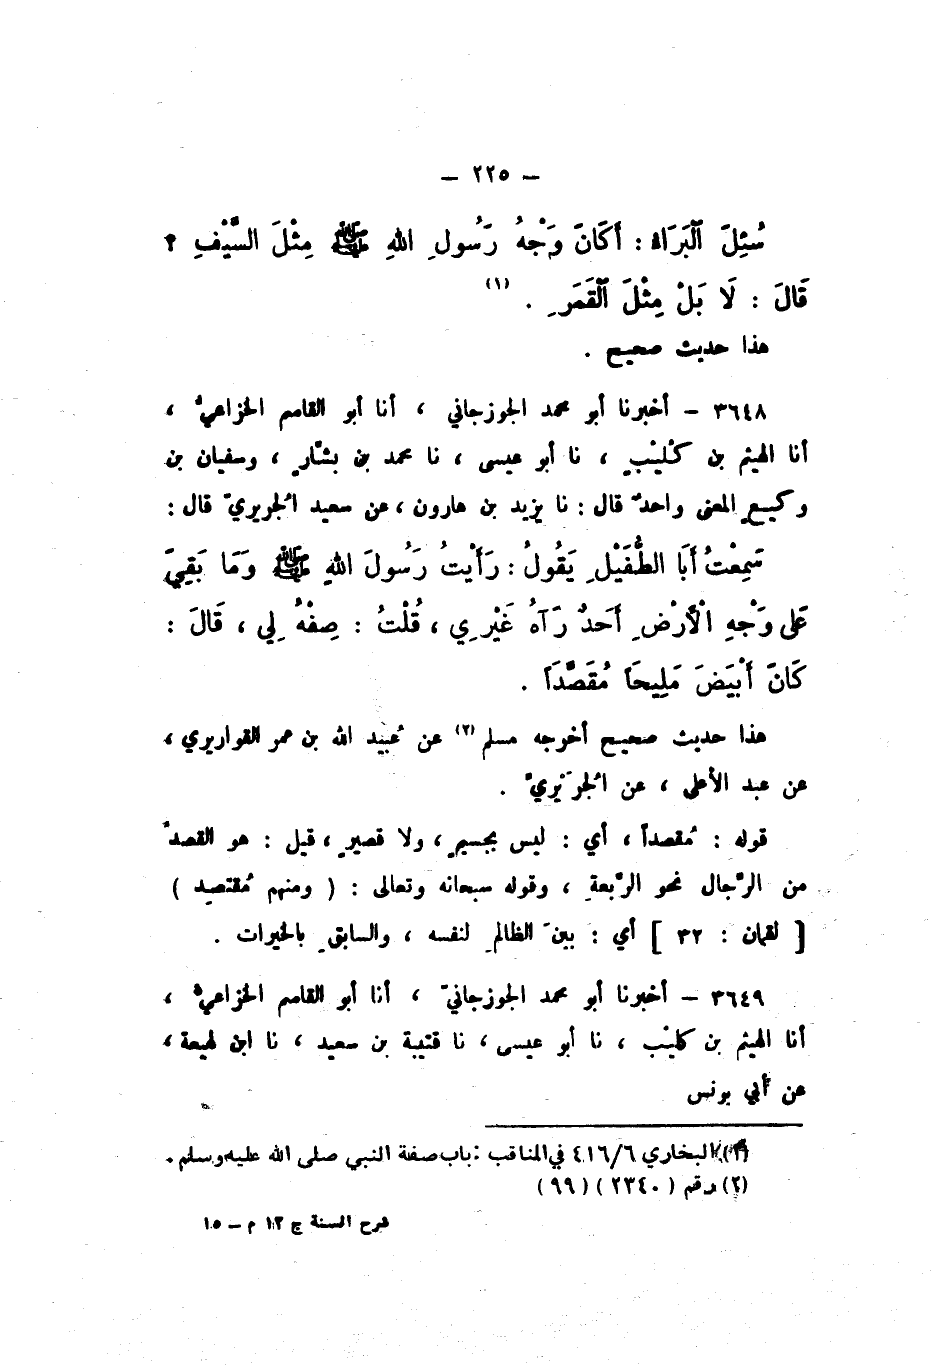 – ٢٢٥ –
سُئِلَ ٱلْبَرَاءُ : أَكَانَ وَجْهُ رَسُولِ اللهِ ﷺ مِثْلَ السَّيْفِ ؟
قَالَ : لَا بَلْ مِثْلَ ٱلْقَمَرِ . (١)
هذا حديث صحيح .
٣٦٤٨ – أخبرنا أبو محمد الجوزجاني ، أنا أبو القاسم الخزاعيُّ ،
أنا الهيثم بن كُلَيْبٍ ، نا أبو عيسى ، نا محمد بن بشّارٍ ، وسفيان بن
وكيعٍ المعنى واحدٌ قال : نا يزيد بن هارون ، عن سعيد الجُريريّ قال :
سَمِعْتُ أَبَا الطُّفَيْلِ يَقُولُ : رَأَيْتُ رَسُولَ اللهِ ﷺ وَمَا بَقِيَ
عَلَى وَجْهِ الْأَرْضِ أَحَدٌ رَآهُ غَيْرِي ، قُلْتُ : صِفْهُ لِي ، قَالَ :
كَانَ أَبْيَضَ مَلِيحَاً مُقَصَّدَاً .
هذا حديث صحيح أخرجه مسلم (٢) عن عُبيد الله بن عمر القواريري ،
عن عبد الأعلى ، عن الجُرَيْريّ .
قوله : مُقصداً ، أي : ليس بجسيمٍ ، ولا قصيرٍ ، قيل : هو القصدُ
من الرّجال نحو الرّبعةِ ، وقوله سبحانه وتعالى : ( ومنهم مُقتصد )
[ لقمان : ٣٢ ] أي : بينَ الظالمِ لنفسه ، والسابقِ بالخيرات .
٣٦٤٩ – أخبرنا أبو محمد الجوزجانيّ ، أنا أبو القاسم الخزاعيُّ ،
أنا الهيثم بن كليْب ، نا أبو عيسى ، نا قتيبة بن سعيد ، نا ابن لهيعة ،
عن أبي يونس
(١) البخاري ٤١٦/٦ في المناقب : باب صفة النبي صلى الله عليه وسلم .
(٢) رقم ( ٢٣٤٠ ) ( ٩٩ )
شرح السنة ج ١٣ م – ١٥